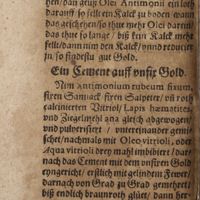 hen/ dan geuß Olei Antimonij ein loth
darauff/ so felt ein Kalck zu boden wann
das geschehen/ so thue mehr Olei darein/
das thue so lange / biß kein Kalck mehr
felt/ dann nim den Kalck/ vnnd reducier
jn/ so findestu gut Gold.
Ein Cement auff vnfix Gold.
Nim antimonium rubeum fixum,
firen Samiack/ firen Salpeter/ biß roth
calcinierter Vitriol/ Lapis hæmatites,
vnd Ziegelmehl ana gleich abgewogen/
vnd puluerisiert / vntereinander gemi-
schet/ nachmals mit Oleo vitrioli, oder
Aqua vitrioli drey mahl imbibiert / dar-
nach das Cement mit dem vnfiren Golde
eyngericht/ erstlich mit gelindem Fewer/
darnach von Grad zu Grad gemehret/
biß endlich braunroth glüet / dann her-